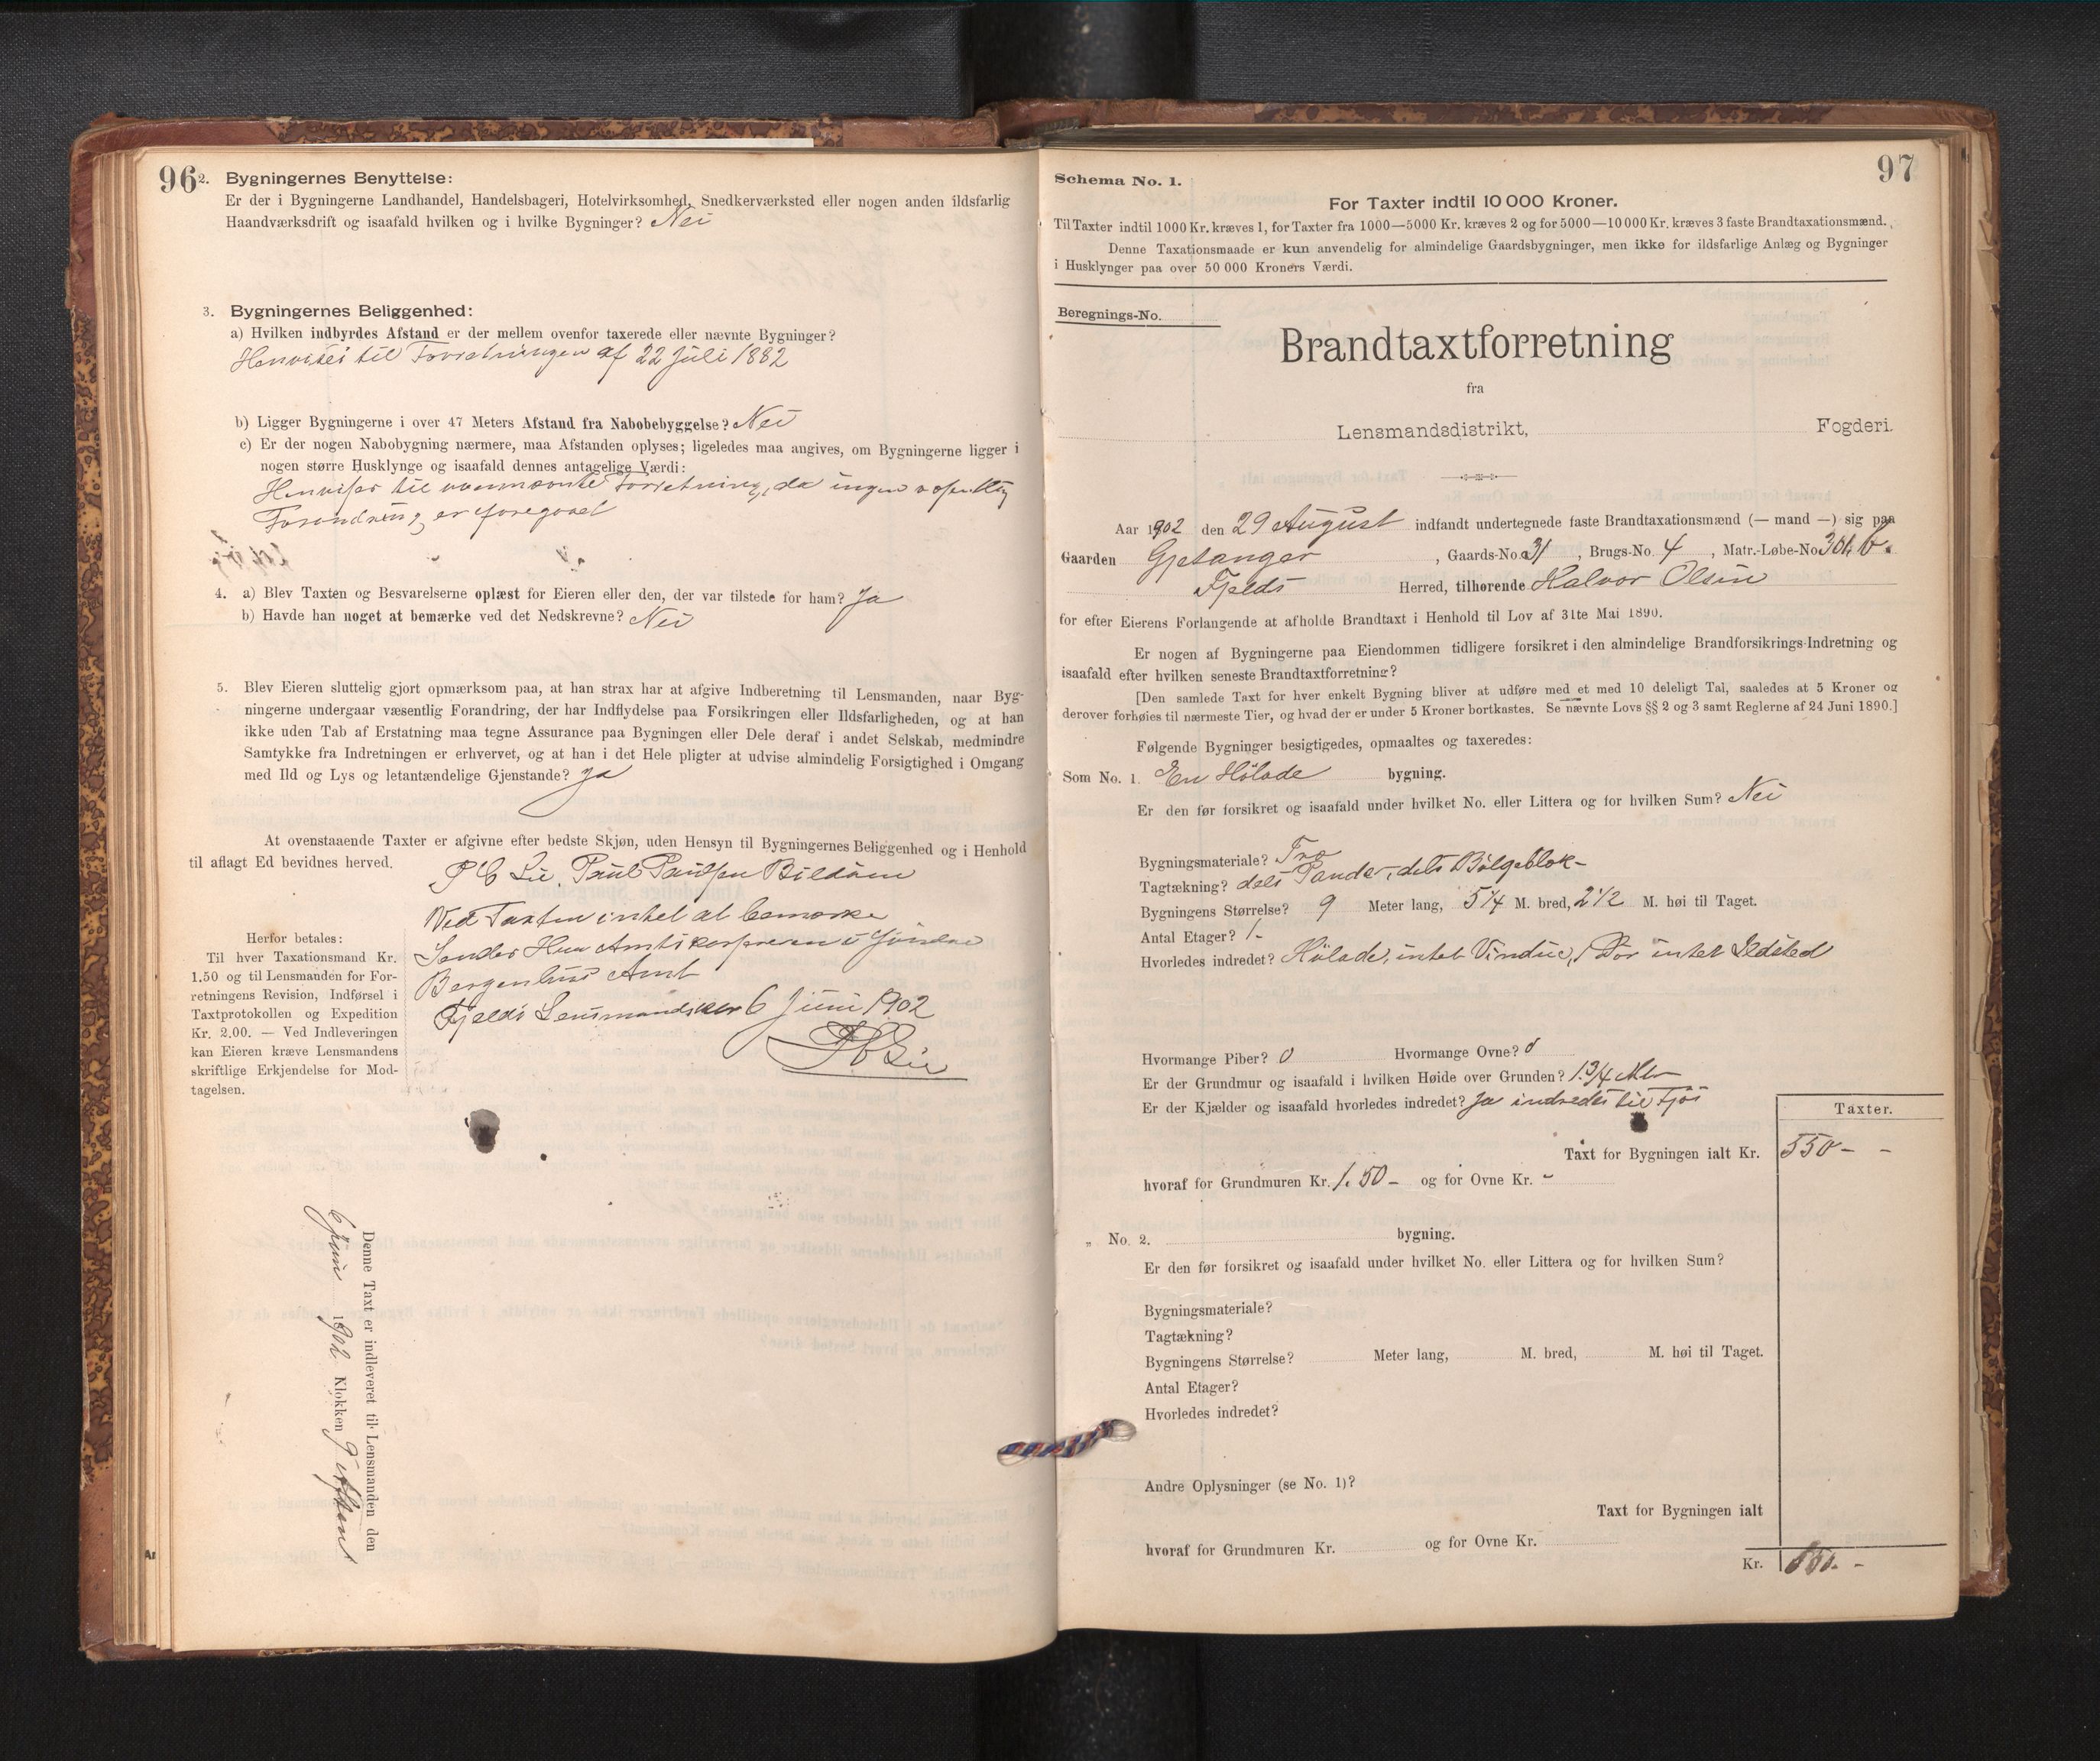 96
2. Bygningernes Benyttelse:
Er der i Bygningerne Landhandel, Handelsbageri, Hotelvirksomhed, Snedkerværksted eller nogen anden ildsfarlig
Haandværksdrift og isaafald hvilken og i hvilke Bygninger? Nei
3. Bygningernes Beliggenhed:
a) Hvilken indbyrdes Afstand er der mellem ovenfor taxerede eller nævnte Bygninger?
Henvises til Forretningen af 22 Juli 1882
b) Ligger Bygningerne i over 47 Meters Afstand fra Nabobebyggelse? Nei
c) Er der nogen Nabobygning nærmere, maa Afstanden oplyses; ligeledes maa angives, om Bygningerne ligger i
nogen større Husklynge og isaafald dennes antagelige Værdi:
Henviser til ovennævnte Forretning, da ingen væsentlig
Forandring er foregaaet
4. a) Blev Taxten og Besvarelserne oplæst for Eieren eller den, der var tilstede for ham? Ja
b) Havde han noget at bemærke ved det Nedskrevne? Nei
5. Blev Eieren sluttelig gjort opmærksom paa, at han strax har at afgive Indberetning til Lensmanden, naar Byg-
ningerne undergaar væsentlig Forandring, der har Indflydelse paa Forsikringen eller Ildsfarligheden, og at han
ikke uden Tab af Erstatning maa tegne Assurance paa Bygningen eller Dele deraf i andet Selskab, medmindre
Samtykke fra Indretningen er erhvervet, og at han i det Hele pligter at udvise almindelig Forsigtighed i Omgang
med Ild og Lys og letantændelige Gjenstande? Ja
At ovenstaaende Taxter er afgivne efter bedste Skjøn, uden Hensyn til Bygningernes Beliggenhed og i Henhold
til aflagt Ed bevidnes herved.
P C Lie Paul Paulsen Bildøen
Ved Taxten intet at bemærke
Sendes Herr Amtskasserern i Søndre
Bergenhus Amt
Fjelds Lensmandsktr 6 Juni 1902
PCLie
Herfor betales:
Til hver Taxationsmand Kr.
1.50 og til Lensmanden for For-
retningens Revision, Indførsel i
Taxtprotokollen og Expedition
Kr. 2.00. — Ved Indleveringen
kan Eieren kræve Lensmandens
skriftlige Erkjendelse for Mod-
tagelsen.
Denne Taxt er indleveret til Lensmanden den
6 Juni 1902 Klokken 9
97
Schema No. 1.
For Taxter indtil 10 000 Kroner.
Til Taxter indtil 1000 Kr. kræves 1, for Taxter fra 1000—5000 Kr. kræves 2 og for 5000—10 000 Kr. kræves 3 faste Brandtaxationsmænd.
Denne Taxationsmaade er kun anvendelig for almindelige Gaardsbygninger, men ikke for ildsfarlige Anlæg og Bygninger
i Husklynger paa over 50 000 Kroners Værdi.
Beregnings-No.
Brandtaxtforretning
fra
Lensmandsdistrikt, Fogderi.
Aar 1902 den 29 August indfandt undertegnede faste Brandtaxationsmænd (— mand —) sig paa
Gaarden Gjetanger, Gaards-No. 31, Brugs-No. 4, Matr.-Løbe-No. 301 b.
Fjelds Herred, tilhørende Halvor Olsen
for efter Eierens Forlangende at afholde Brandtaxt i Henhold til Lov af 31te Mai 1890.
Er nogen af Bygningerne paa Eiendommen tidligere forsikret i den almindelige Brandforsikrings-Indretning og
isaafald efter hvilken seneste Brandtaxtforretning?
[Den samlede Taxt for hver enkelt Bygning bliver at udføre med et med 10 deleligt Tal, saaledes at 5 Kroner og
derover forhøies til nærmeste Tier, og hvad der er under 5 Kroner bortkastes. Se nævnte Lovs §§ 2 og 3 samt Reglerne af 24 Juni 1890.]
Følgende Bygninger besigtigedes, opmaaltes og taxeredes:
Som No. 1. En Hølade bygning.
Er den før forsikret og isaafald under hvilket No. eller Littera og for hvilken Sum? Nei
Bygningsmateriale? Træ
Tagtækning? dels Pande-, dels Bølgeblik-
Bygningens Størrelse? 9 Meter lang, 5 1/4 M. bred, 2 1/2 M. høi til Taget.
Antal Etager? 1-
Hvorledes indredet? Hølade, intet Vindue, 1 Dør intet Ildsted
Hvormange Piber? 0 Hvormange Ovne? 0
Er der Grundmur og isaafald i hvilken Høide over Grunden? 1 3/4 Mtr
Er der Kjælder og isaafald hvorledes indredet? Ja indredet til Fjøs
Taxter.
Taxt for Bygningen ialt Kr. 550 - -
hvoraf for Grundmuren Kr. 1.50 - og for Ovne Kr. -
„ No. 2. bygning.
Er den før forsikret og isaafald under hvilket No. eller Littera og for hvilken Sum?
Bygningsmateriale?
Tagtækning?
Bygningens Størrelse? Meter lang, M. bred, M. høi til Taget.
Antal Etager?
Hvorledes indredet?
Andre Oplysninger (se No. 1)?
Taxt for Bygningen ialt
hvoraf for Grundmuren Kr. og for Ovne Kr.
Kr. 550 - -